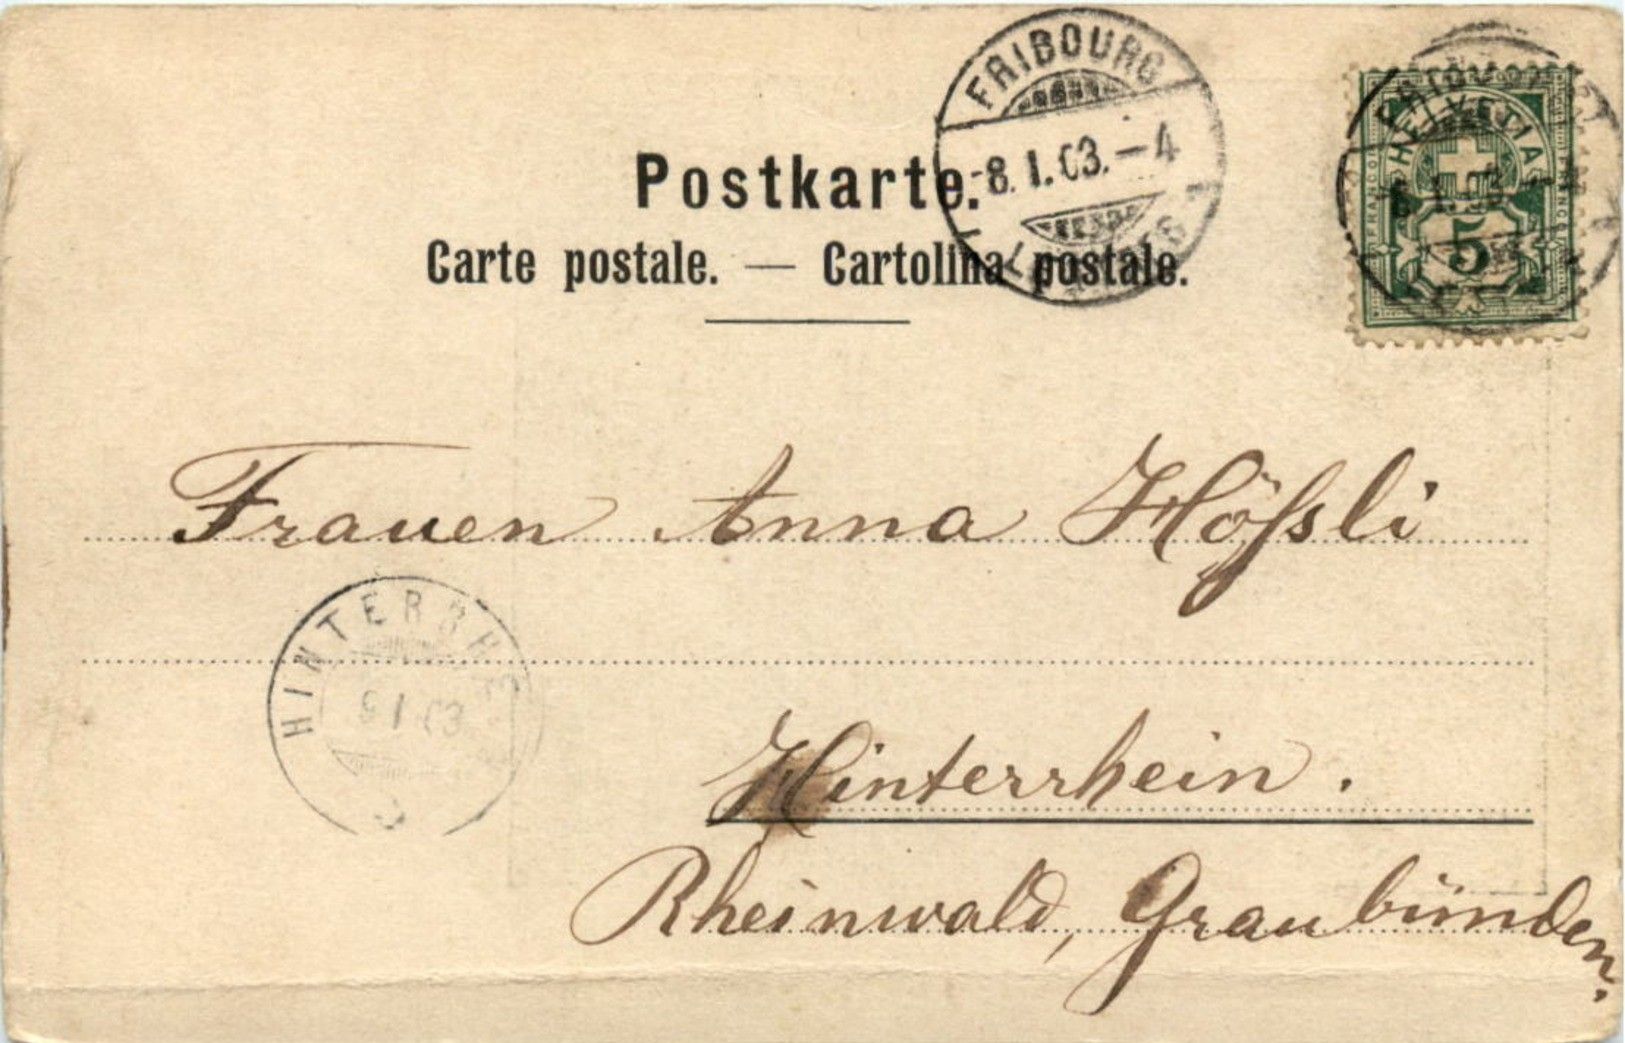 Postkarte.
Carte postale. — Cartolina postale.
FRIBOURG
8. I. 03. – 4
HELVETIA
5
FRANCO
Frauen Anna Hößli
HINTERRHE
9 I 03
Hinterrhein.
Rheinwald, Graubünden.